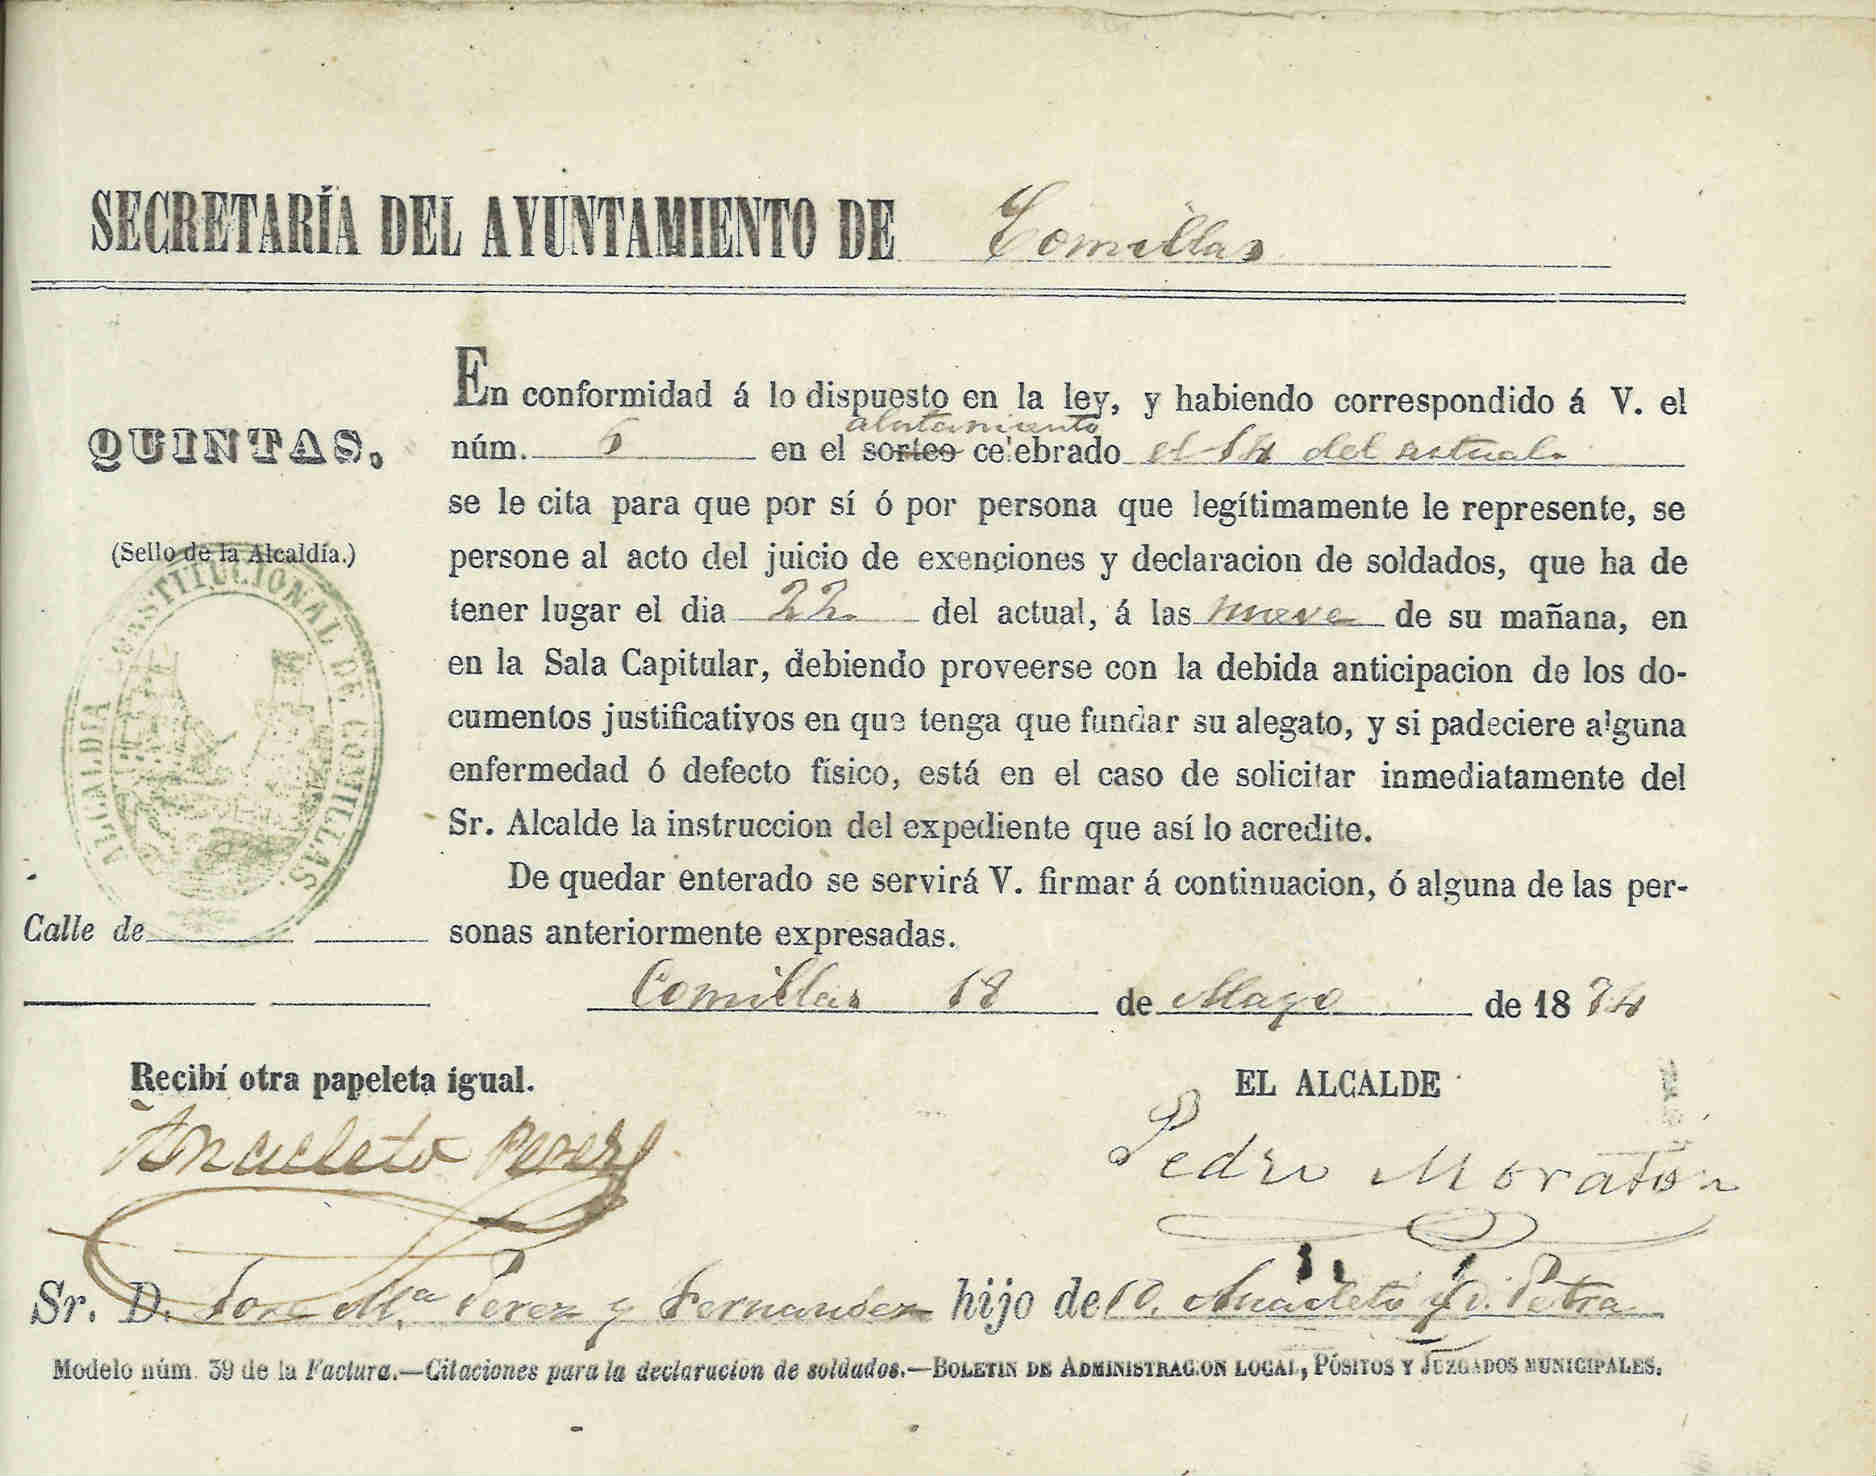 SECRETARÍA DEL AYUNTAMIENTO DE Comillas
QUINTAS.
(Sello de la Alcaldía.)
ALCALDIA CONSTITUCIONAL DE COMILLAS.
Calle de
En conformidad á lo dispuesto en la ley, y habiendo correspondido á V. el
alistamiento
núm. 6 en el sorteo celebrado el 14 del actual.
se le cita para que por sí ó por persona que legítimamente le represente, se
persone al acto del juicio de exenciones y declaracion de soldados, que ha de
tener lugar el dia 22 del actual, á las nueve de su mañana, en
en la Sala Capitular, debiendo proveerse con la debida anticipacion de los do-
cumentos justificativos en que tenga que fundar su alegato, y si padeciere alguna
enfermedad ó defecto físico, está en el caso de solicitar inmediatamente del
Sr. Alcalde la instruccion del expediente que así lo acredite.
De quedar enterado se servirá V. firmar á continuacion, ó alguna de las per-
sonas anteriormente expresadas.
Comillas 18 de Mayo de 1874
Recibí otra papeleta igual.
Anacleto Perez
EL ALCALDE
Pedro Moraton
Sr. D. Jose Mª Perez y Fernandez hijo de D. Anacleto y D. Petra
Modelo núm. 39 de la Factura.—Citaciones para la declaracion de soldados.—BOLETIN DE ADMINISTRACION LOCAL, PÓSITOS Y JUZGADOS MUNICIPALES.